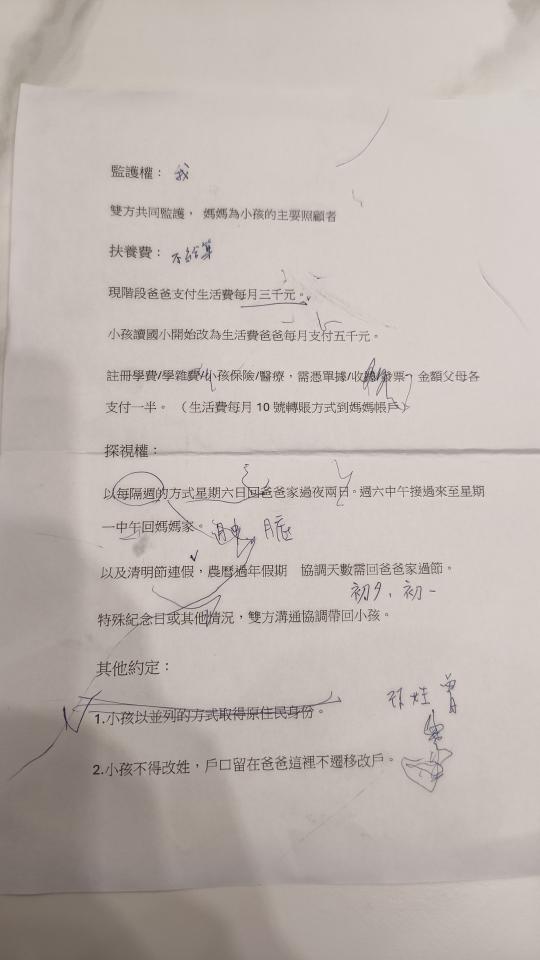 監護權： 我
雙方共同監護， 媽媽為小孩的主要照顧者
扶養費：
現階段爸爸支付生活費每月三千元。
小孩讀國小開始改為生活費爸爸每月支付五千元。
註冊學費/學雜費/小孩保險/醫療，需憑單據/收據/發票，金額父母各
支付一半。（生活費每月 10 號轉賬方式到媽媽帳戶）
探視權：
以每隔週的方式星期六日回爸爸家過夜兩日。週六中午接過來至星期
一中午回媽媽家。
以及清明節連假，農曆過年假期 協調天數需回爸爸家過節。
初夕、初一
特殊紀念日或其他情況，雙方溝通協調帶回小孩。
其他約定：
1.小孩以並列的方式取得原住民身份。
姓曾
2.小孩不得改姓，戶口留在爸爸這裡不遷移改戶。